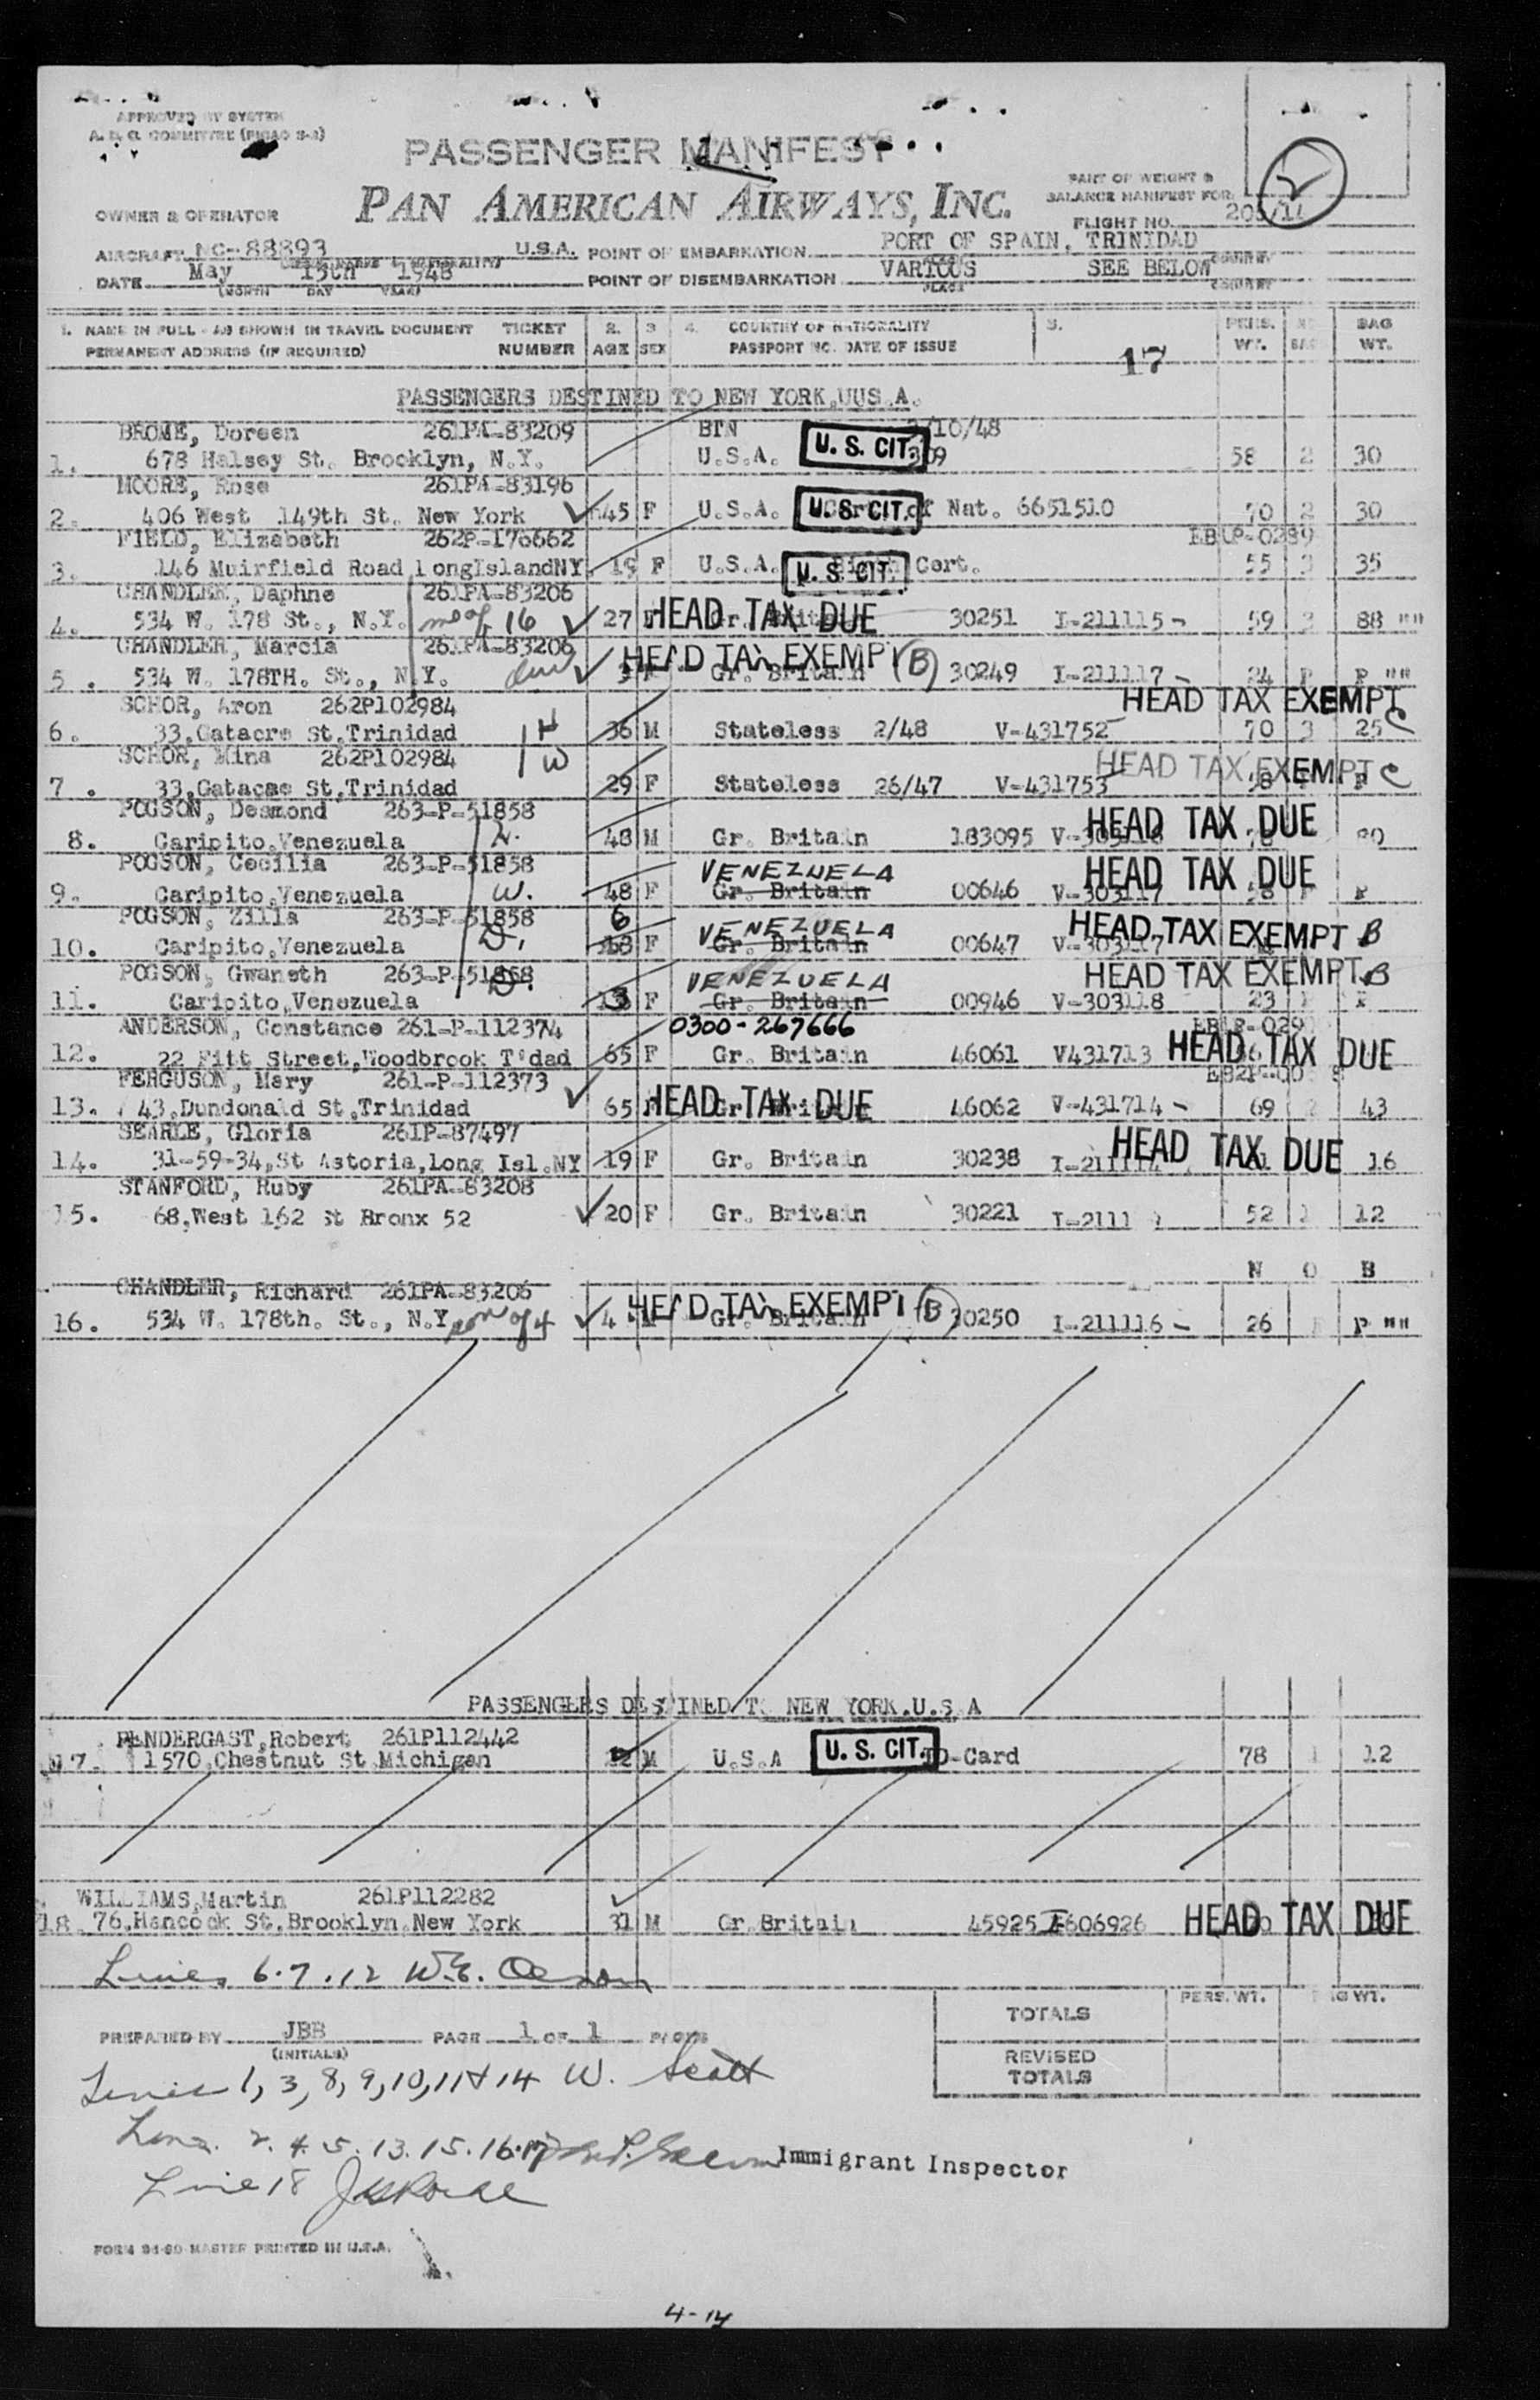 APPROVED BY SYSTEM
A. D. O. COMMITTEE (PICAO S-2)
PASSENGER MANIFEST
PAN AMERICAN AIRWAYS, INC.
PART OF WEIGHT &
BALANCE MANIFEST FOR:
2
OWNER & OPERATOR
FLIGHT NO.
AIRCRAFT NC-88893 U.S.A. POINT OF EMBARKATION PORT OF SPAIN, TRINIDAD
DATE May 15th 1948 POINT OF DISEMBARKATION VARIOUS SEE BELOW
(MONTH DAY YEAR) PLACE COUNTRY
1. NAME IN FULL - AS SHOWN IN TRAVEL DOCUMENT TICKET 2. 3 4. COUNTRY OF NATIONALITY 5. PERS. BAG
PERMANENT ADDRESS (IF REQUIRED) NUMBER AGE SEX PASSPORT NO. DATE OF ISSUE 17 WT. WT.
PASSENGERS DESTINED TO NEW YORK,UUS.A.
BROME, Doreen 261PA-83209 /10/48
1. 678 Halsey St. Brooklyn, N.Y. U.S.A. U. S. CIT. 58 2 30
MOORE, Rose 261PA-83196
2. 406 West 149th St. New York 45 F U.S.A. U. S. CIT. of Nat. 6651510 70 2 30
FIELD, Elizabeth
3. 146 Muirfield Road,longIslandNY. 19 F U.S.A. U. S. CIT. Cert. 55 3 35
CHANDLER, Daphne 261PA-83206
4. 534 W. 178 St., N.Y. mo of 16 27 F HEAD TAX DUE Gr. Britain 30251 I-211115- 59 3 88 ""
CHANDLER, Marcia 261PA-83206
5. 534 W. 178TH. St., N.Y. 3 F HEAD TAX EXEMPT (B) Gr. Britain 30249 I-211117- 24 P P ""
SCHOR, Aron 262P102984 HEAD TAX EXEMPT C
6. 33,Gatacre St,Trinidad H 36 M Stateless 2/48 V-431752 70 3 25
SCHOR, Mina 262P102984 W HEAD TAX EXEMPT C
7. 33,Gatacae St,Trinidad 29 F Stateless 26/47 V-431753
POGSON, Desmond 263-P-51858 HEAD TAX DUE
8. Caripito,Venezuela 48 M Gr. Britain 183095
POGSON, Cecilia 263-P-51858 VENEZUELA HEAD TAX DUE
9. Caripito,Venezuela W. 48 F Gr. Britain 00646 V-303117
POGSON, Zilla 263-P-51858 6 VENEZUELA HEAD TAX EXEMPT B
10. Caripito,Venezuela D. F Gr. Britain 00647
POGSON, Gwaneth 263-P-51858 VENEZUELA HEAD TAX EXEMPT B
11. Caripito,Venezuela D. 13 F Gr. Britain 00946 V-303118 23
ANDERSON, Constance 261-P-112374 0300-267666
12. 22 Pitt Street,Woodbrook T'dad 65 F Gr. Britain 46061 V431713 HEAD TAX DUE
FERGUSON, Mary 261-P-112373
13. 43,Dundonald St,Trinidad 65 F HEAD TAX DUE Gr. Britain 46062 V-431714- 69 2 43
SEARLE, Gloria 261P-87497
14. 31-59-34,St Astoria,Long Isl.NY 19 F Gr. Britain 30238 HEAD TAX DUE 16
STANFORD, Ruby 261PA-83208
15. 68,West 162 St Bronx 52 20 F Gr. Britain 30221 52 1 12
N O B
CHANDLER, Richard 261PA-83206
16. 534 W. 178th. St., N.Y. son of 4 4 M HEAD TAX EXEMPT (B) Gr. Britain 30250 I-211116- 26 P ""
PASSENGERS DESTINED TO NEW YORK.U.S.A
PENDERGAST,Robert 261P112442
17. 1570,Chestnut St,Michigan M U.S.A U. S. CIT. ID-Card 78 1 12
WILLIAMS,Martin 261P112282
18. 76,Hancock St,Brooklyn,New York 31 M Gr.Britain 45925 I-606926 HEAD TAX DUE
Lines 6.7.12 W.E.
TOTALS PERS. WT. BAG WT.
PREPARED BY JBB PAGE 1 OF 1 PAGES
(INITIALS)
REVISED
TOTALS
Lines 1, 3, 8, 9, 10, 11 & 14 W. Scott
Lines 2. 4. 5. 13. 15. 16. 17 Immigrant Inspector
Line 18
FORM 84-90 MASTER PRINTED IN U.S.A.
4-14